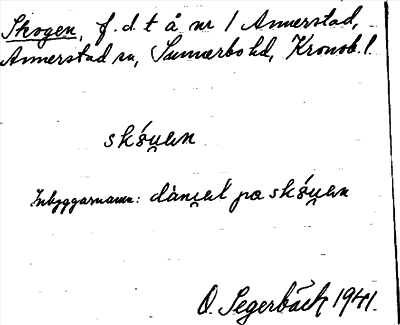 Skogen, f. d. t å nr 1 Annerstad,
Annerstad sn, Sunnerbo hd, Kronob. l.
skǿu̯ɐn
Inbyggarnamn: dànɩ̯ɐl pɑ skǿu̯ɐn
O. Segerbäck 1941.